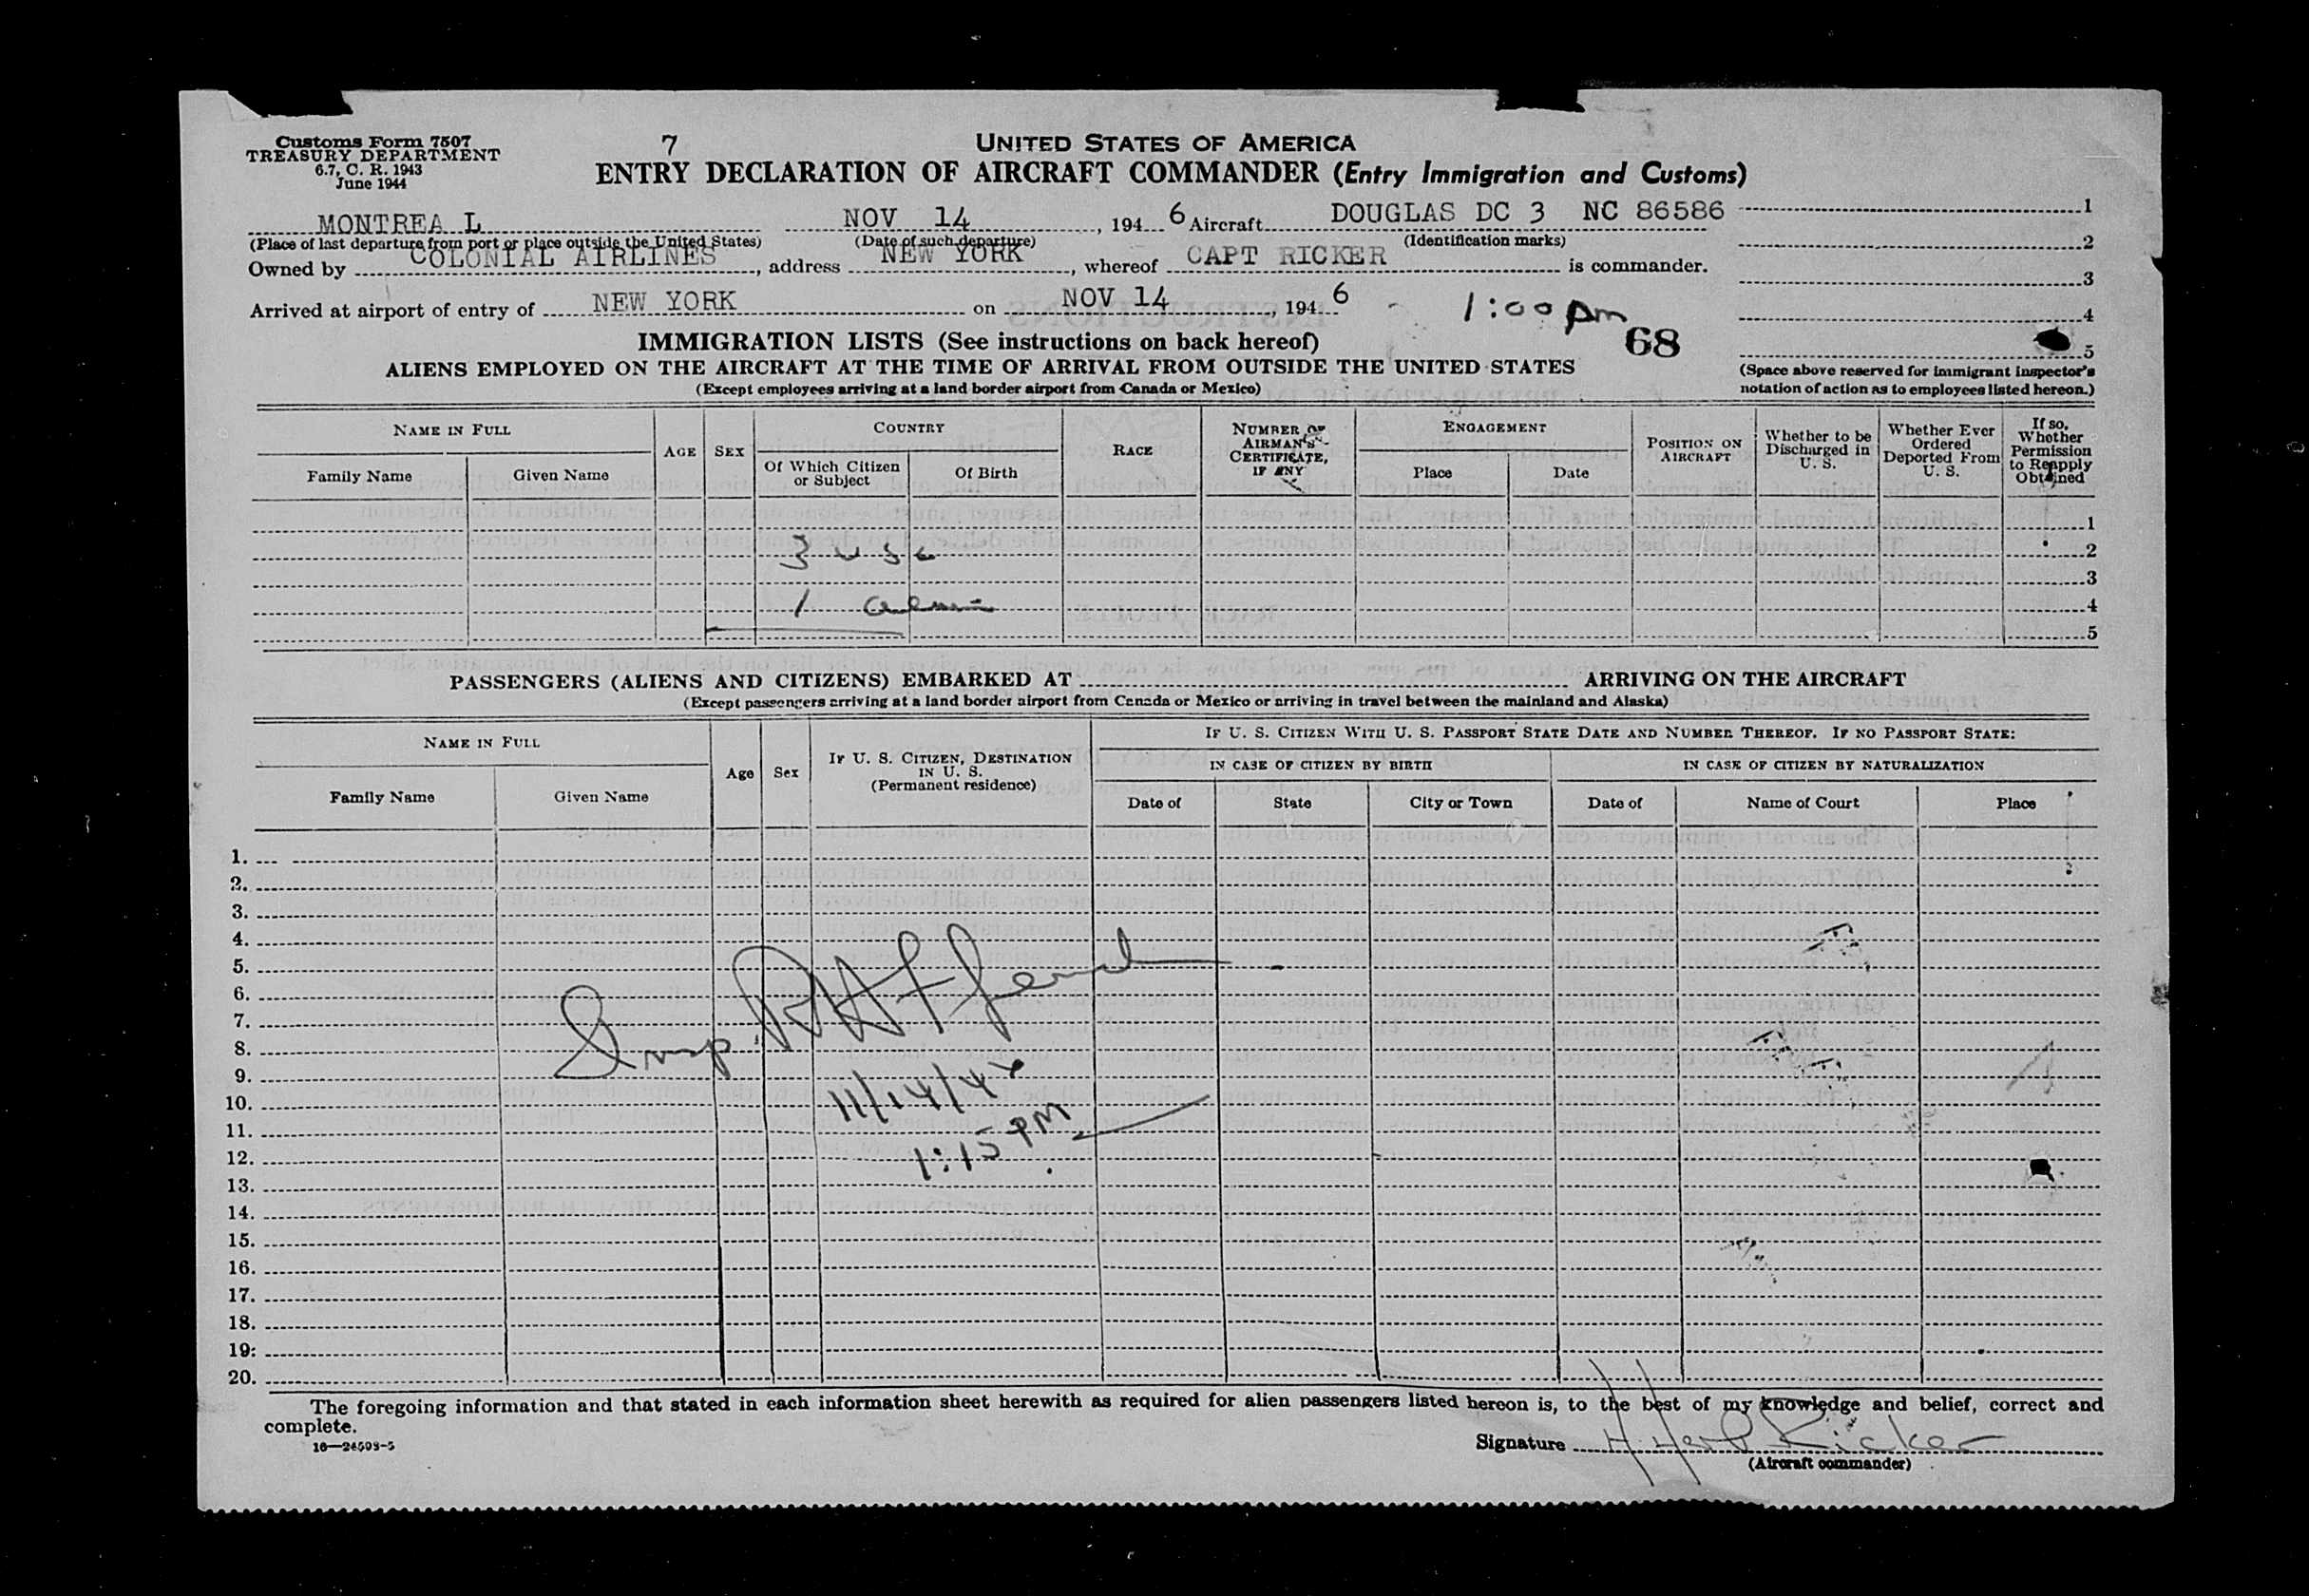 Customs Form 7507
TREASURY DEPARTMENT
6.7, C. R. 1943
June 1944
7
UNITED STATES OF AMERICA
ENTRY DECLARATION OF AIRCRAFT COMMANDER (Entry Immigration and Customs)
MONTREA L NOV 14, 1946 Aircraft DOUGLAS DC 3 NC 86586
(Place of last departure from port or place outside the United States) (Date of such departure) (Identification marks)
Owned by COLONIAL AIRLINES, address NEW YORK, whereof CAPT RICKER is commander.
Arrived at airport of entry of NEW YORK on NOV 14, 1946 - 1:00 pm
1
2
3
4
5
68
(Space above reserved for immigrant inspector's
notation of action as to employees listed hereon.)
IMMIGRATION LISTS (See instructions on back hereof)
ALIENS EMPLOYED ON THE AIRCRAFT AT THE TIME OF ARRIVAL FROM OUTSIDE THE UNITED STATES
(Except employees arriving at a land border airport from Canada or Mexico)
NAME IN FULL
Family Name Given Name
AGE
SEX
COUNTRY
Of Which Citizen
or Subject
Of Birth
RACE
NUMBER OF
AIRMAN'S
CERTIFICATE,
IF ANY
ENGAGEMENT
Place Date
POSITION ON
AIRCRAFT
Whether to be
Discharged in
U. S.
Whether Ever
Ordered
Deported From
U. S.
If so,
Whether
Permission
to Reapply
Obtained
1
3 u s c 2
3
1 4
5
PASSENGERS (ALIENS AND CITIZENS) EMBARKED AT ARRIVING ON THE AIRCRAFT
(Except passengers arriving at a land border airport from Canada or Mexico or arriving in travel between the mainland and Alaska)
NAME IN FULL
Family Name Given Name
Age
Sex
IF U. S. CITIZEN, DESTINATION
IN U. S.
(Permanent residence)
IF U. S. CITIZEN WITH U. S. PASSPORT STATE DATE AND NUMBER THEREOF. IF NO PASSPORT STATE:
IN CASE OF CITIZEN BY BIRTH
Date of State City or Town
IN CASE OF CITIZEN BY NATURALIZATION
Date of Name of Court Place
1.
2.
3.
4.
5.
6.
7.
8.
9.
10.
11.
12.
13.
14.
15.
16.
17.
18.
19.
20.
Insp
11/14/46
1:15 PM
The foregoing information and that stated in each information sheet herewith as required for alien passengers listed hereon is, to the best of my knowledge and belief, correct and
complete.
16—24593-5
Signature H Herb Ricker
(Aircraft commander)